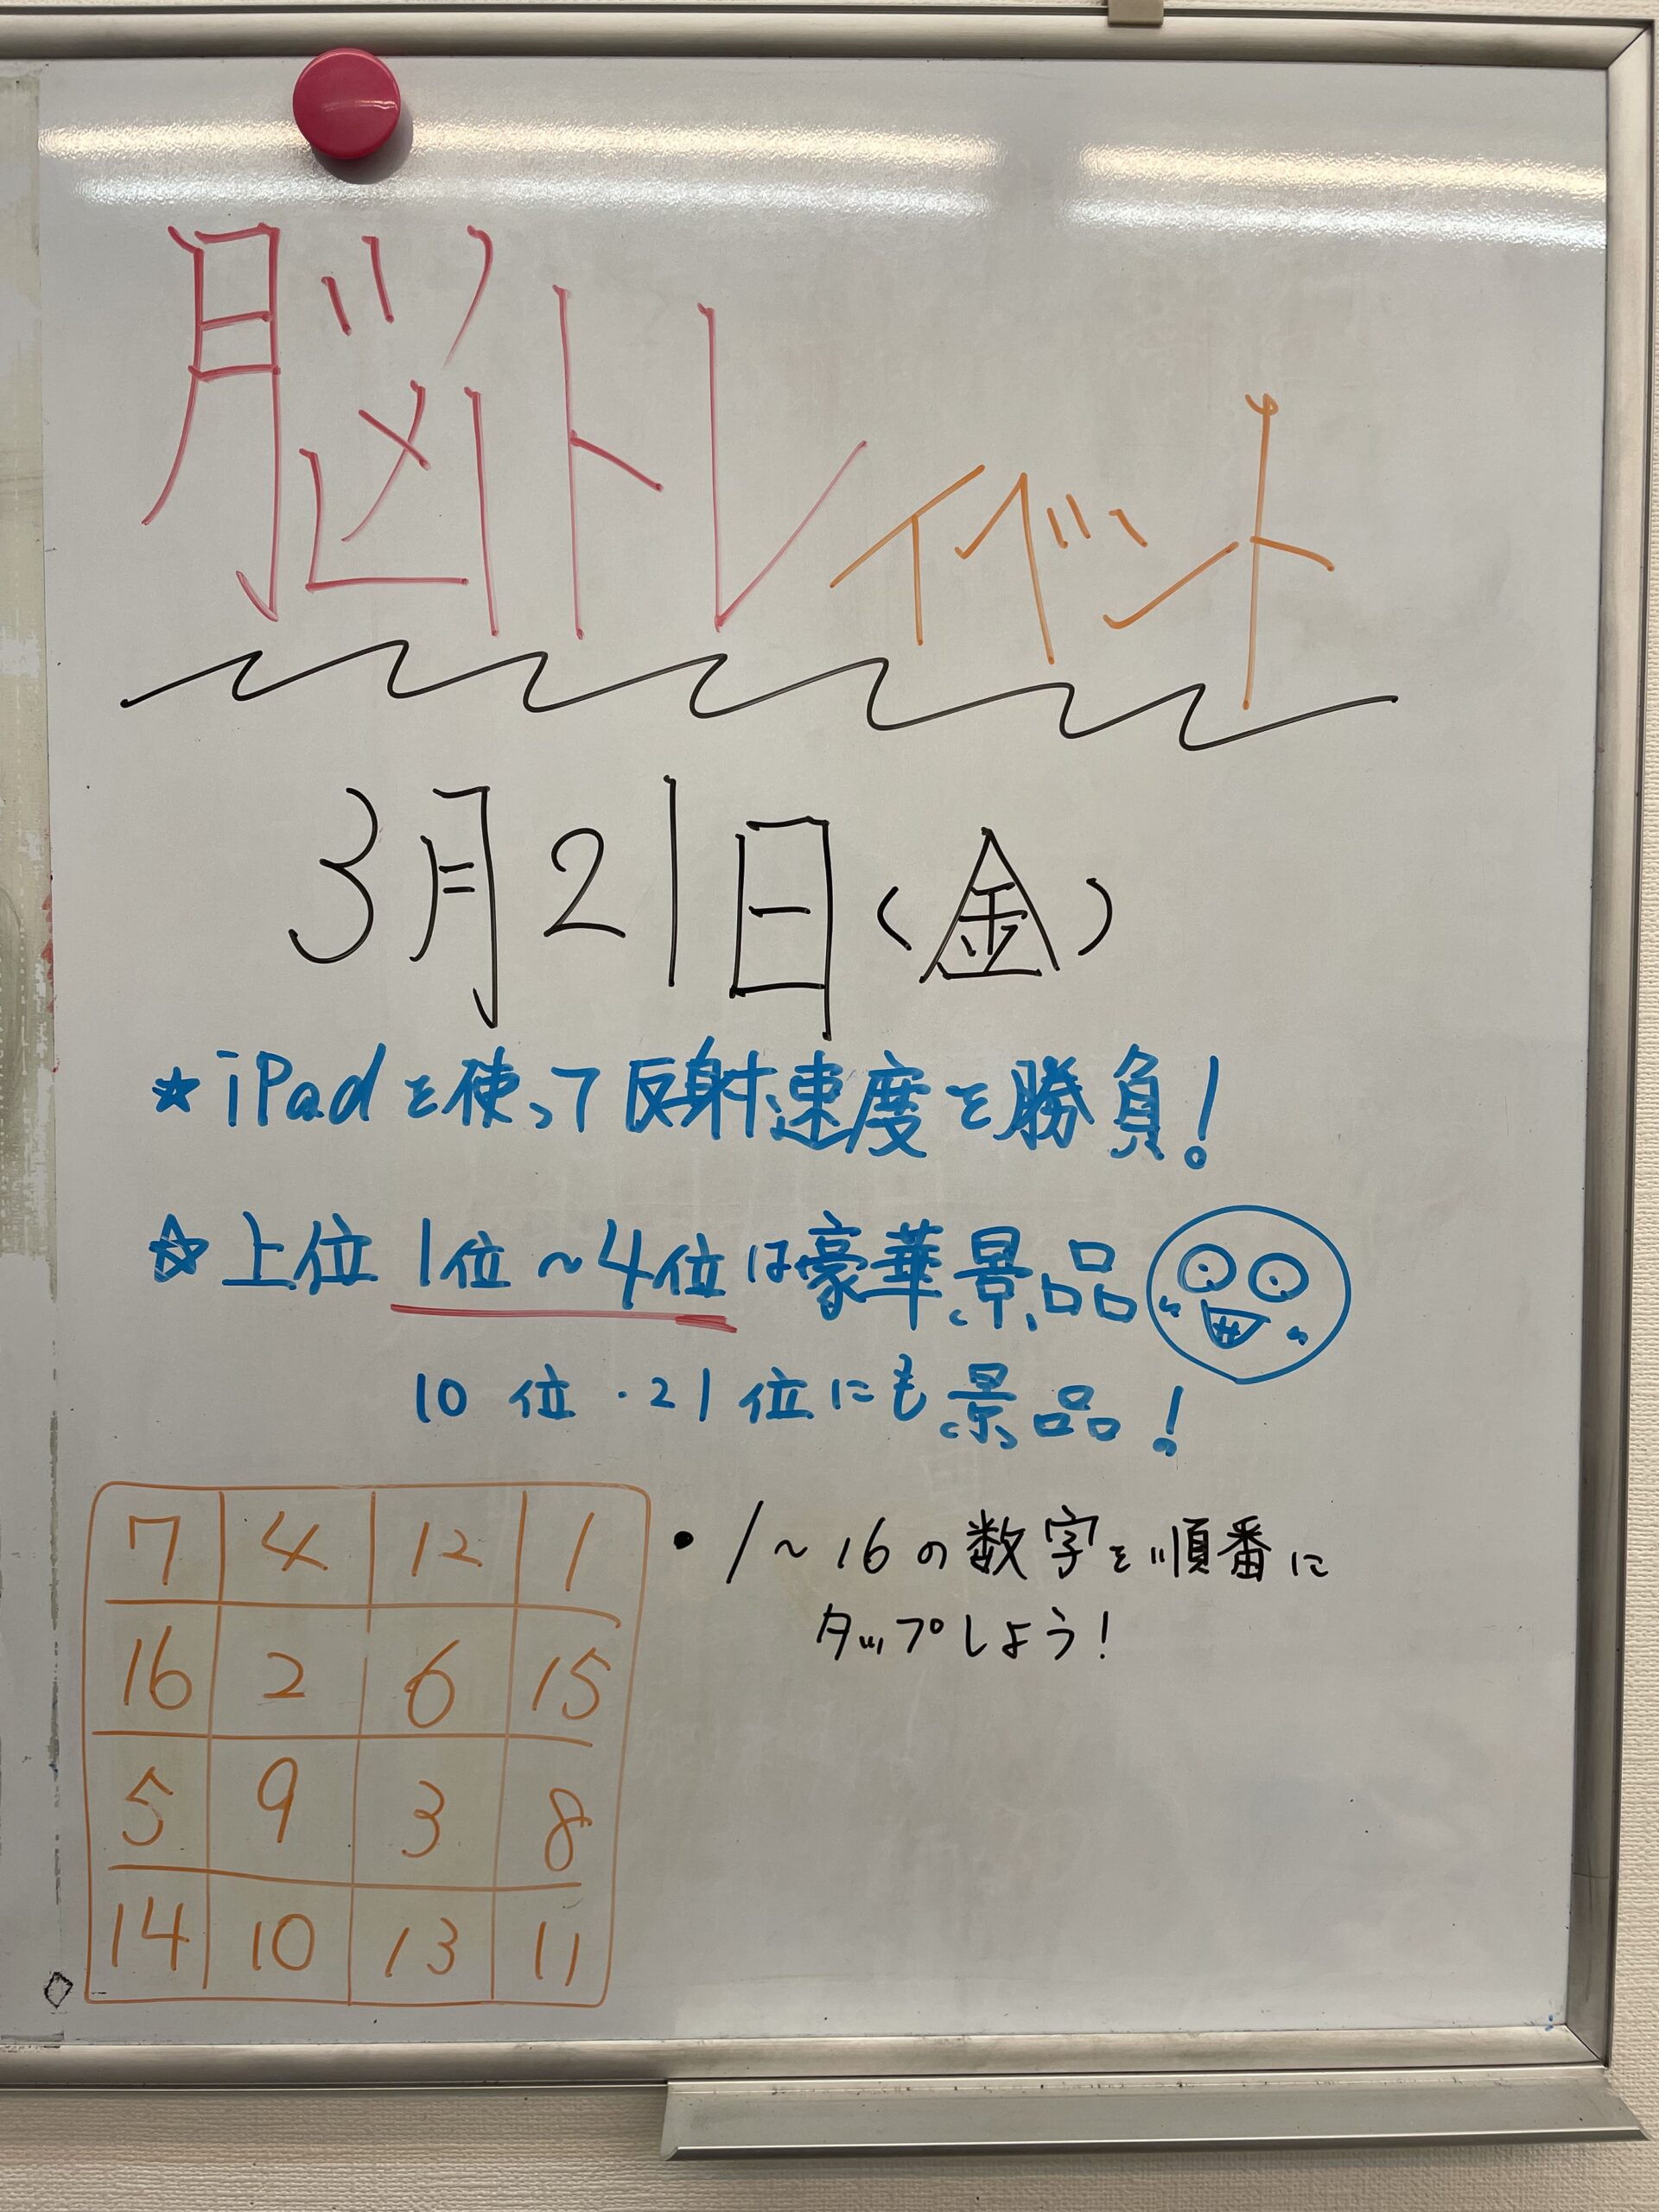 脳トレイベント
3月21日(金)
★iPadを使って反射速度を勝負!
☆上位1位~4位は豪華景品
10位・21位にも景品!
7 4 12 1
16 2 6 15
5 9 3 8
14 10 13 11
・1~16の数字を順番に
タップしよう!